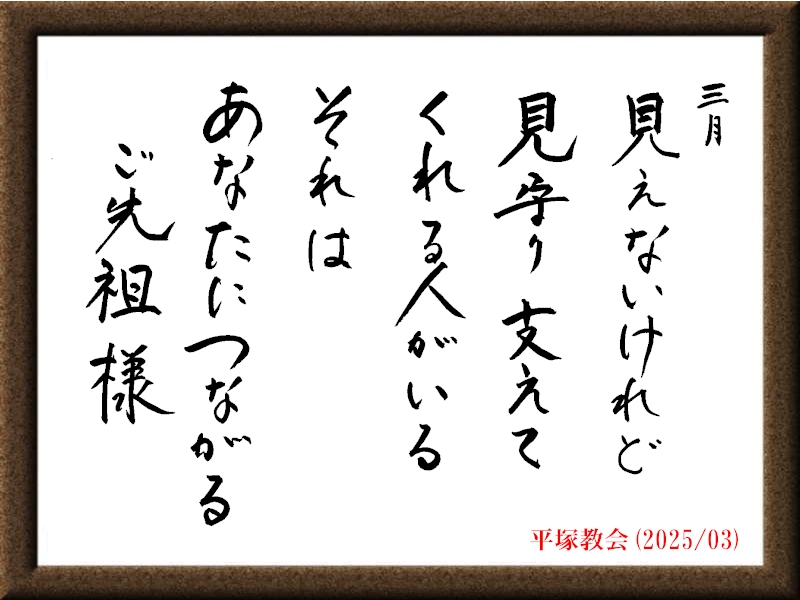 三月
見えないけれど
見守り支えて
くれる人がいる
それは
あなたにつながる
ご先祖様
平塚教会(2025/03)